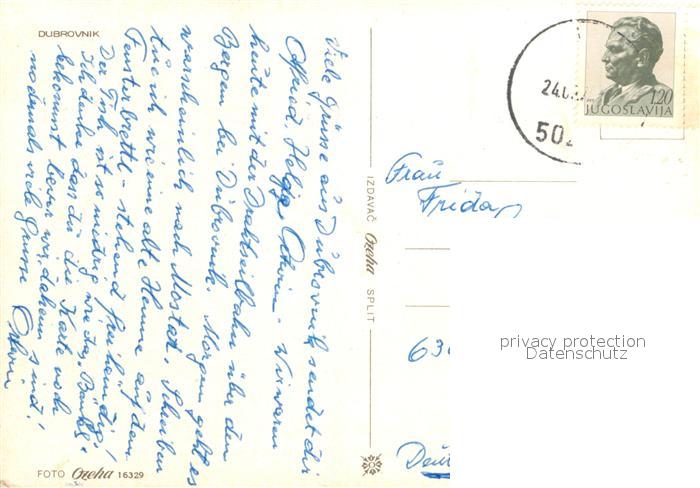 DUBROVNIK
Viele Grüsse aus Dübrovnik sendet dir
Alfried. Helga Ottwin - Wir waren
heute mit der Drahtseilbahn über den
Bergen bei Dübrovnik. Morgen geht es
warscheinlich nach Mostar. Schreiben
tue ich wie eine alte Henne auf dem
Fensterbrettl - stehend freihändig!
Der Tisch ist so niedrig wie das Bankl.
Ich denke dass du die Karte noch
bekommst bevor wir daheim sind!
nochmals viele Grüsse Ottwin
FOTO Ozeha 16329
IZDAVAČ Ozeha SPLIT
24.0
50
1,20
JUGOSLAVIJA
Frau
Frida
63
privacy protection
Datenschutz